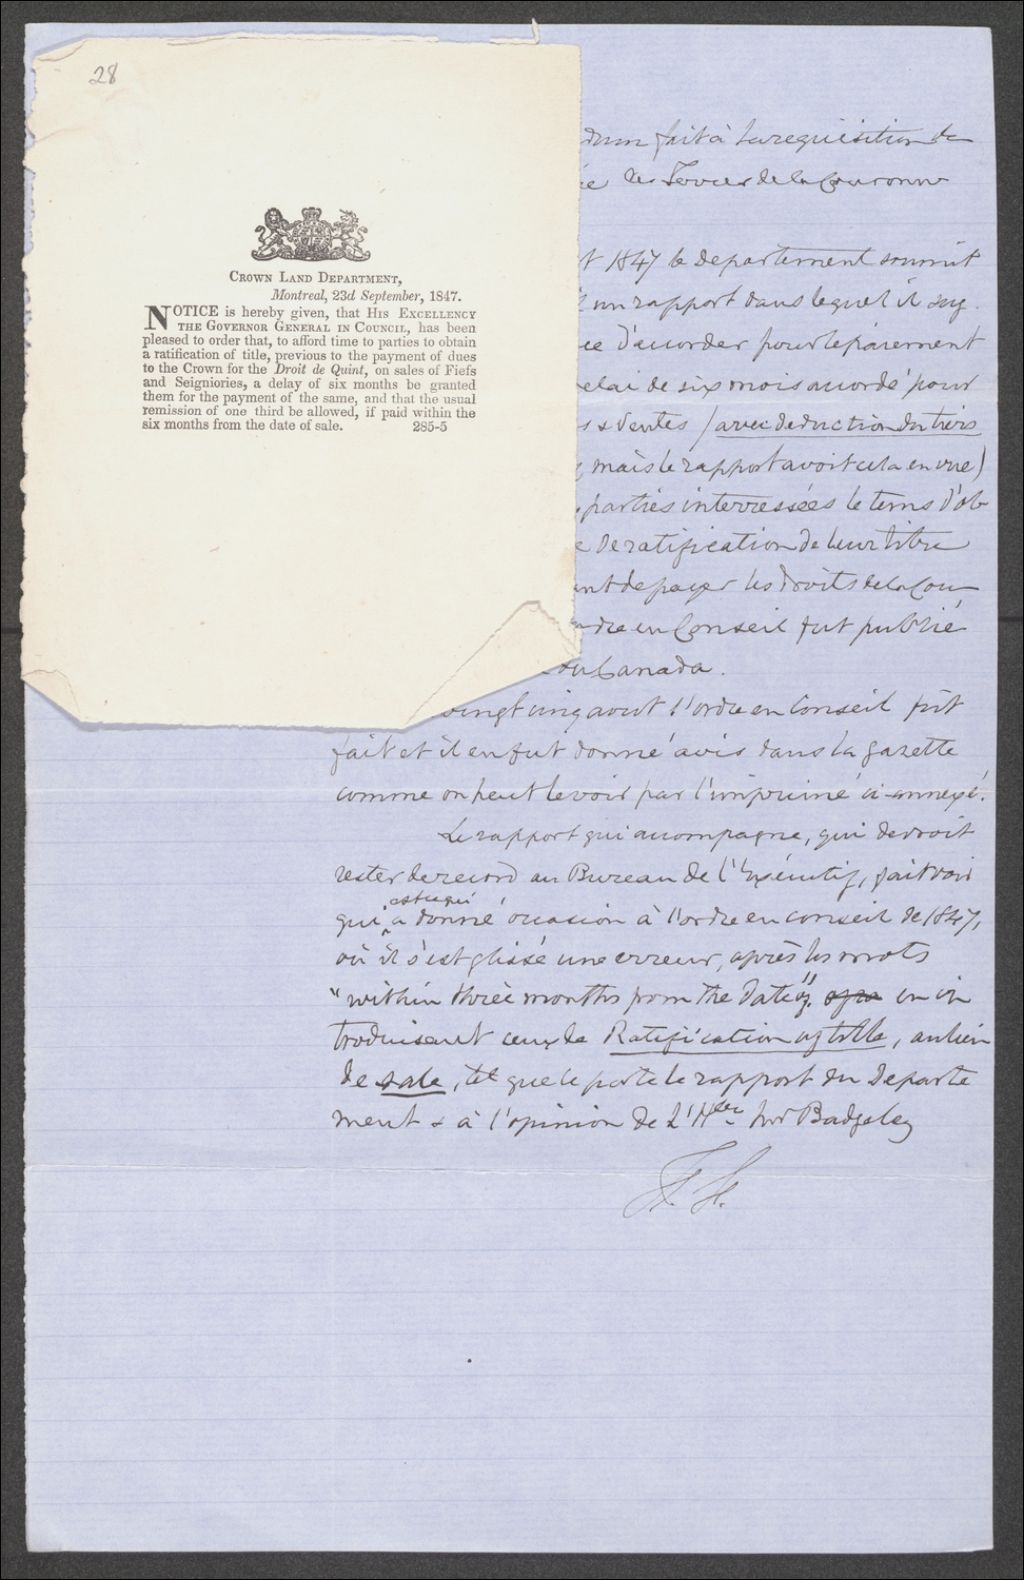 28
CROWN LAND DEPARTMENT,
Montreal, 23d September, 1847.
NOTICE is hereby given, that HIS EXCELLENCY
THE GOVERNOR GENERAL IN COUNCIL, has been
pleased to order that, to afford time to parties to obtain
a ratification of title, previous to the payment of dues
to the Crown for the Droit de Quint, on sales of Fiefs
and Seigniories, a delay of six months be granted
them for the payment of the same, and that the usual
remission of one third be allowed, if paid within the
six months from the date of sale. 285-5
dum fait à la requisition de
les Terres de la Couronne
1847 le departement soumit
un rapport dans lequel il sug
d'accorder pour le paiement
elai de six mois accordé pour
s & Ventes (avec deduction du tiers
mais le rapport avoit cela en vue)
parties interressées le tems d'ob
de ratification de leur titre
ant de payer les droits de la Cou
dre en Conseil fut publié
du Canada.
vingt cinq aout l'ordre en Conseil fut
fait et il en fut donné avis dans la gazette
comme on peut le voir par l'imprimé ci-annexé.
Le rapport qui accompagne, qui devroit
rester de record au Bureau de l'Exécutif, fait voir
est ce qui
qui a donné occasion à l'ordre en conseil de 1847,
où il s'est glissé une erreur, après les mots
"within three months from the date of" en in
troduisant ceux de Ratification of title, au lieu
de sale, tel que le porte le rapport du Departe
ment & à l'opinion de L'Hble Mr Badgeley